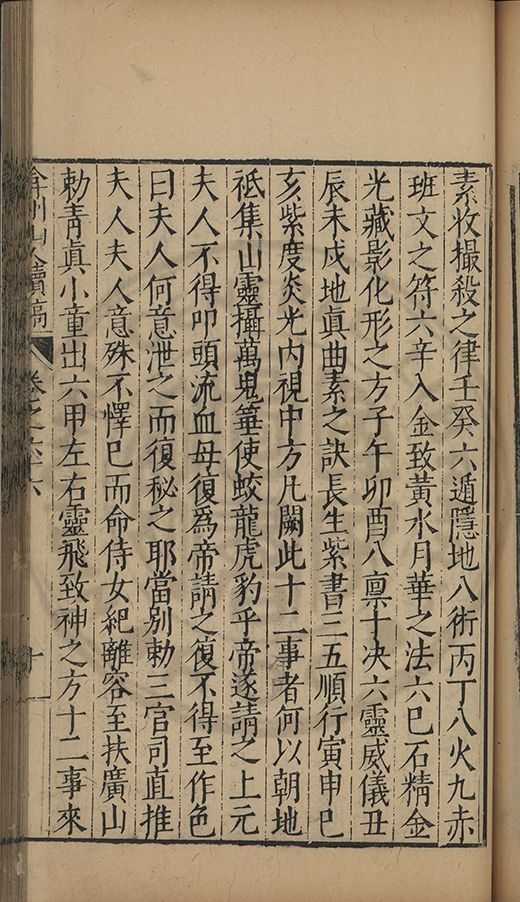 素收攝殺之律壬癸六遁隱地八術丙丁入火九赤
班文之符六辛入金致黃水月華之法六巳石精金
光藏影化形之方子午卯酉八稟十决六靈威儀丑
辰未戍地眞曲素之訣長生紫書三五順行寅申巳
亥紫度炎光内視中方凡闕此十二事者何以朝地
祇集山靈攝萬鬼箠使蛟龍虎豹乎帝遂請之上元
夫人不得叩頭流血母復爲帝請之復不得至作色
曰夫人何意泄之而復秘之耶當别勅三官司直推
夫人夫人意殊不懌巳而命侍女紀離容至扶廣山
勅靑眞小童出六甲左右靈飛致神之方十二事來
弇州山人續稿
卷之六十六
十